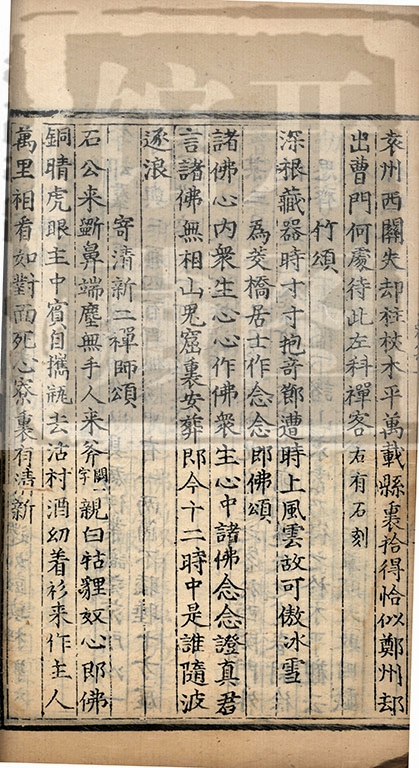 袁州西關失却拄杖木平萬載縣裏拾得恰似鄭州却
出曹門何處待此左科禪客右有石刻
竹頌
深根藏器時寸寸抱奇節遭時上風雲故可傲冰雪
為菱橋居士作念念即佛頌
諸佛心內衆生心心作佛衆生心中諸佛念念證真君
言諸佛無相山鬼窟裏安葬即今十二時中是誰隨波
逐浪
寄清新二禪師頌
石公来斲鼻端塵無手人来斧闕字親白牯貍奴心即佛
銅睛虎眼主中賓自攜瓶去沽村酒幼着衫来作主人
萬里相看如對面死心寮裏有清新